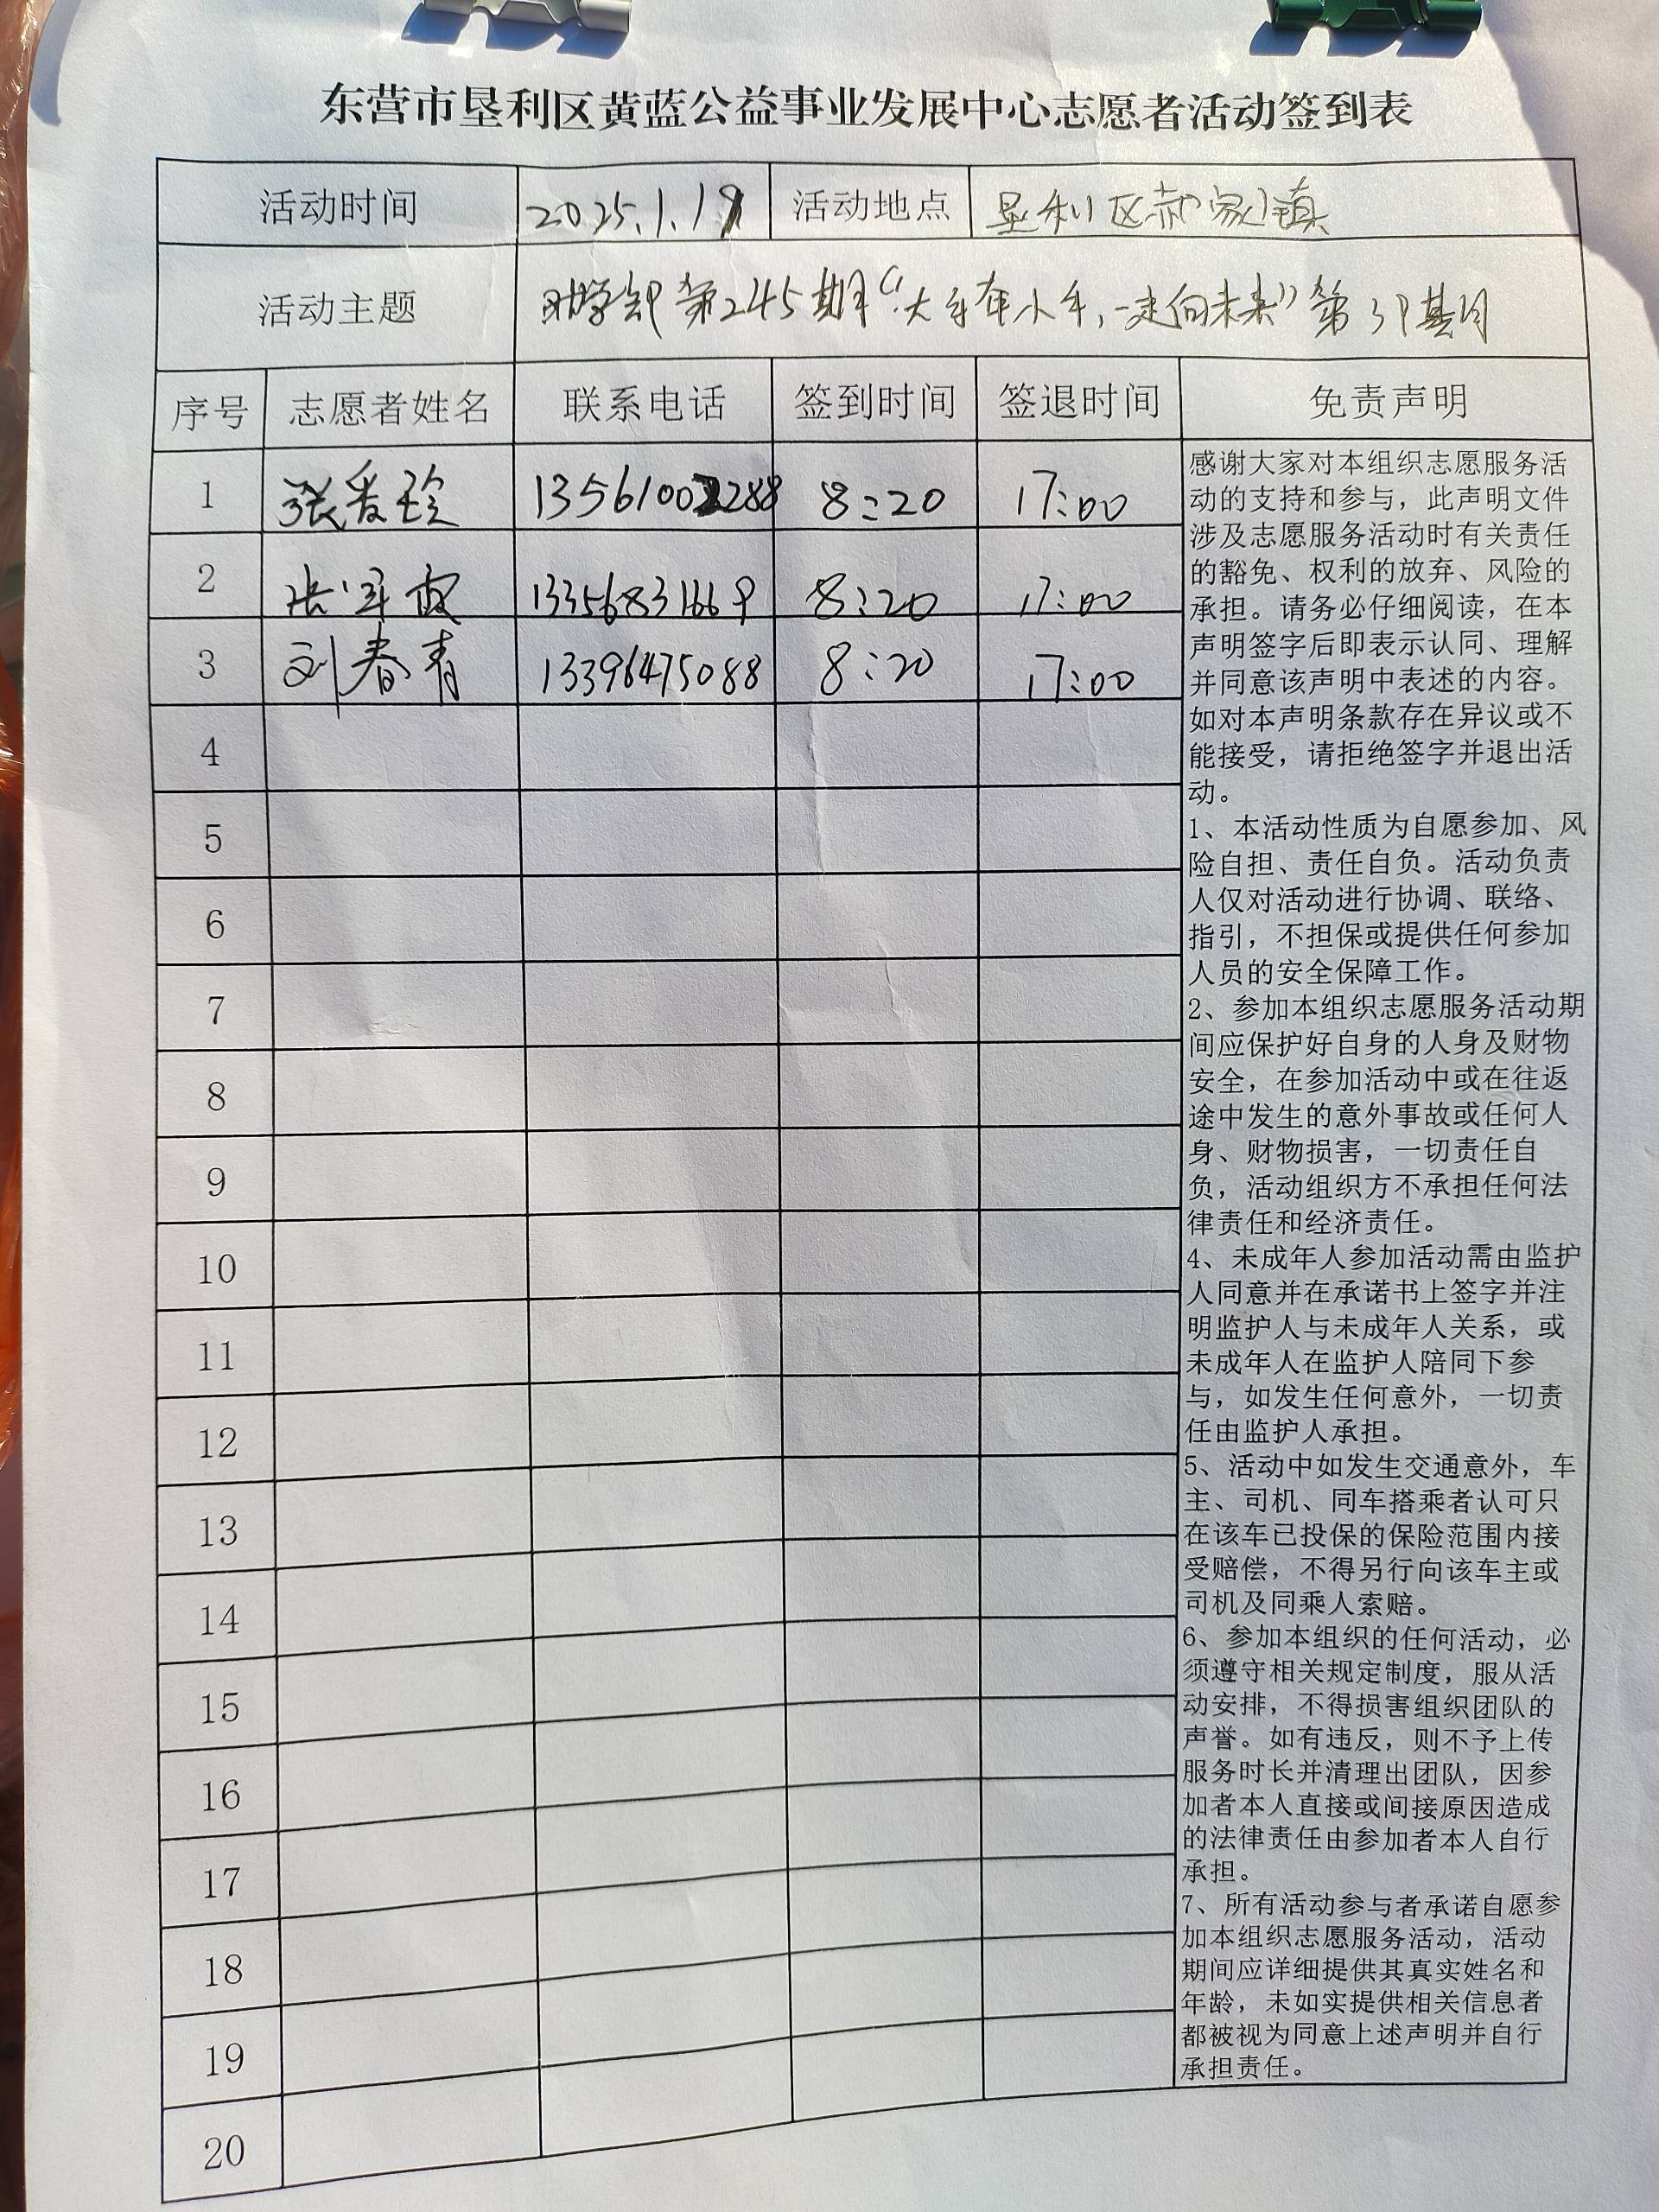 东营市垦利区黄蓝公益事业发展中心志愿者活动签到表
活动时间 2025.1.19 活动地点 垦利区郝家镇
活动主题 助学部第245期“大手牵小手,一走向未来”第39期
序号 志愿者姓名 联系电话 签到时间 签退时间 免责声明
1 张爱玲 13561002288 8:20 17:00
2 13356831669 8:20 17:00
3 刘春青 13396475088 8:20 17:00
4
5
6
7
8
9
10
11
12
13
14
15
16
17
18
19
20
感谢大家对本组织志愿服务活
动的支持和参与，此声明文件
涉及志愿服务活动时有关责任
的豁免、权利的放弃、风险的
承担。请务必仔细阅读，在本
声明签字后即表示认同、理解
并同意该声明中表述的内容。
如对本声明条款存在异议或不
能接受，请拒绝签字并退出活
动。
1、本活动性质为自愿参加、风
险自担、责任自负。活动负责
人仅对活动进行协调、联络、
指引，不担保或提供任何参加
人员的安全保障工作。
2、参加本组织志愿服务活动期
间应保护好自身的人身及财物
安全，在参加活动中或在往返
途中发生的意外事故或任何人
身、财物损害，一切责任自
负，活动组织方不承担任何法
律责任和经济责任。
4、未成年人参加活动需由监护
人同意并在承诺书上签字并注
明监护人与未成年人关系，或
未成年人在监护人陪同下参
与，如发生任何意外，一切责
任由监护人承担。
5、活动中如发生交通意外，车
主、司机、同车搭乘者认可只
在该车已投保的保险范围内接
受赔偿，不得另行向该车主或
司机及同乘人索赔。
6、参加本组织的任何活动，必
须遵守相关规定制度，服从活
动安排，不得损害组织团队的
声誉。如有违反，则不予上传
服务时长并清理出团队，因参
加者本人直接或间接原因造成
的法律责任由参加者本人自行
承担。
7、所有活动参与者承诺自愿参
加本组织志愿服务活动，活动
期间应详细提供其真实姓名和
年龄，未如实提供相关信息者
都被视为同意上述声明并自行
承担责任。